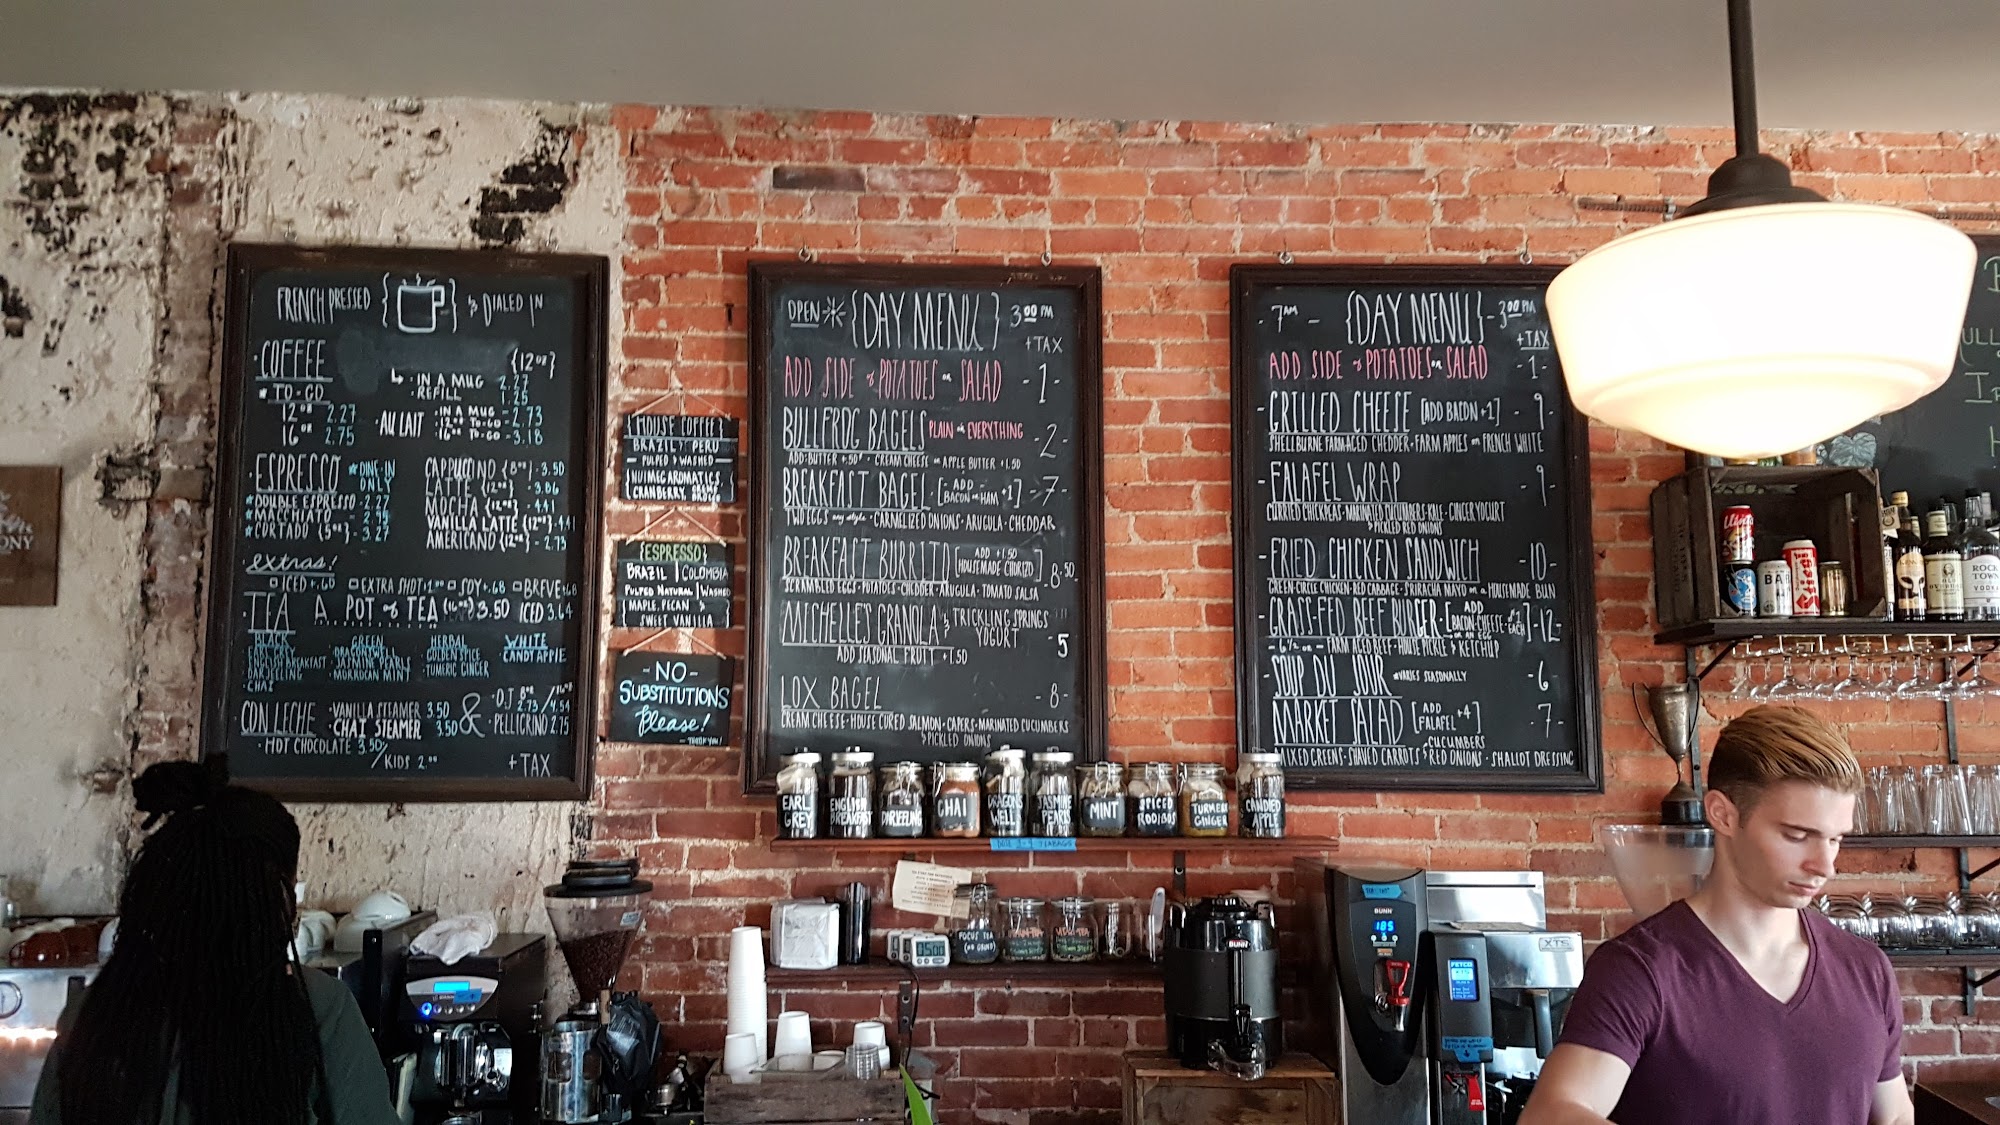 FRENCH PRESSED { } & DIALED IN
COFFEE {12 oz}
IN A MUG 2.27
REFILL 1.25
* TO-GO
12 oz 2.27
16 oz 2.75
AU LAIT
IN A MUG - 2.73
12 oz TO-GO -
16 oz TO-GO - 3.18
ESPRESSO * DINE-IN ONLY
* DOUBLE ESPRESSO - 2.27
* MACCHIATO - 2.95
* CORTADO {5 oz} - 3.27
CAPPUCCINO {8 oz} - 3.50
LATTE {12 oz} - 3.86
MOCHA {12 oz} - 4.41
VANILLA LATTE {12 oz} - 4.41
AMERICANO {12 oz} - 2.73
extras!
ICED +.60 EXTRA SHOT +1.00 SOY +.68 BREVE +.68
TEA A POT of TEA (16 oz) 3.50 ICED 3.64
BLACK
ENGLISH BREAKFAST
DARJEELING
CHAI
GREEN
DRAGONWELL
JASMINE PEARLS
MORROCAN MINT
HERBAL
GOLDEN SPICE
TUMERIC GINGER
WHITE
CANDY APPLE
CON LECHE
VANILLA STEAMER 3.50
CHAI STEAMER 3.50
& O.J. 8 oz 2.73 / 16 oz 4.54
PELLIGRINO 2.75
HOT CHOCOLATE 3.50 / KIDS 2.00
+ TAX
{ HOUSE COFFEE }
BRAZIL & PERU
- PULPED & WASHED -
NUTMEG AROMATICS
CRANBERRY,
{ESPRESSO}
BRAZIL | COLOMBIA
PULPED NATURAL | WASHED
MAPLE, PECAN &
SWEET VANILLA
- NO -
SUBSTITUTIONS
Please!
- THANK YOU!
OPEN {DAY MENU} 3:00 PM
+ TAX
ADD SIDE of POTATOES or SALAD - 1 -
BULLFROG BAGELS PLAIN or EVERYTHING - 2 -
ADD: BUTTER +.50 · CREAM CHEESE or APPLE BUTTER +1.50
BREAKFAST BAGEL [- ADD - BACON or HAM +1] - 7 -
TWO EGGS any style · CARMELIZED ONIONS · ARUGULA · CHEDDAR
BREAKFAST BURRITO [ADD +1.50 HOUSEMADE CHORIZO] - 8.50
SCRAMBLED EGGS · POTATOES · CHEDDER · ARUGULA · TOMATO SALSA
MICHELLE'S GRANOLA & TRICKLING SPRINGS YOGURT - 5
ADD SEASONAL FRUIT +1.50
LOX BAGEL - 8 -
CREAM CHEESE · HOUSE CURED SALMON · CAPERS · MARINATED CUCUMBERS
& PICKLED ONIONS
- 7 AM - {DAY MENU} - 3:00 PM
+ TAX
ADD SIDE of POTATOES or SALAD - 1 -
GRILLED CHEESE [ADD BACON +1] - 9 -
SHELBURNE FARM AGED CHEDDER · FARM APPLES on FRENCH WHITE
FALAFEL WRAP - 9 -
CURRIED CHICKPEAS · MARINATED CUCUMBERS · KALE · GINGER YOGURT
& PICKLED RED ONIONS
FRIED CHICKEN SANDWICH - 10 -
GREEN CIRCLE CHICKEN · RED CABBAGE · SRIRACHA MAYO on a HOUSEMADE BUN
GRASS-FED BEEF BURGER [ADD BACON · CHEESE or AN EGG +1 EACH] - 12 -
- 6½ oz - FARM AGED BEEF · HOUSE PICKLE & KETCHUP
SOUP DU JOUR * VARIES SEASONALLY - 6 -
MARKET SALAD [ADD FALAFEL +4] - 7 -
MIXED GREENS · SHAVED CARROTS · CUCUMBERS & RED ONIONS · SHALLOT DRESSING
EARL GREY
ENGLISH BREAKFAST
DARJEELING
CHAI
DRAGONS WELL
JASMINE PEARLS
MINT
SPICED ROOIBOS
TURMERIC GINGER
CANDIED APPLE
FOCUS TEA
BUNN
BUNN
185
FETCO
XTS
ROCK TOWN VODKA